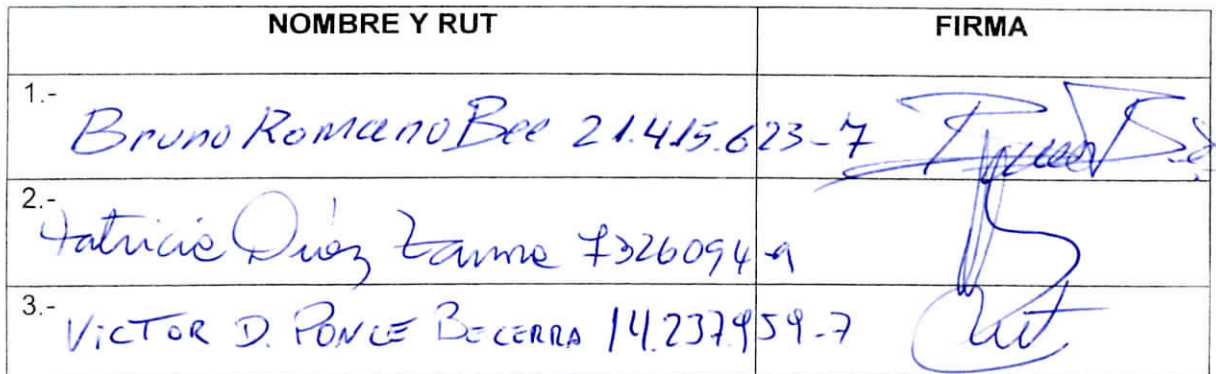 NOMBRE Y RUT FIRMA
1.- Bruno Romano Bee 21.415.623-7
2.- Patricia Díaz 7326094-9
3.- VICTOR D. PONCE BECERRA 14.237.959-7